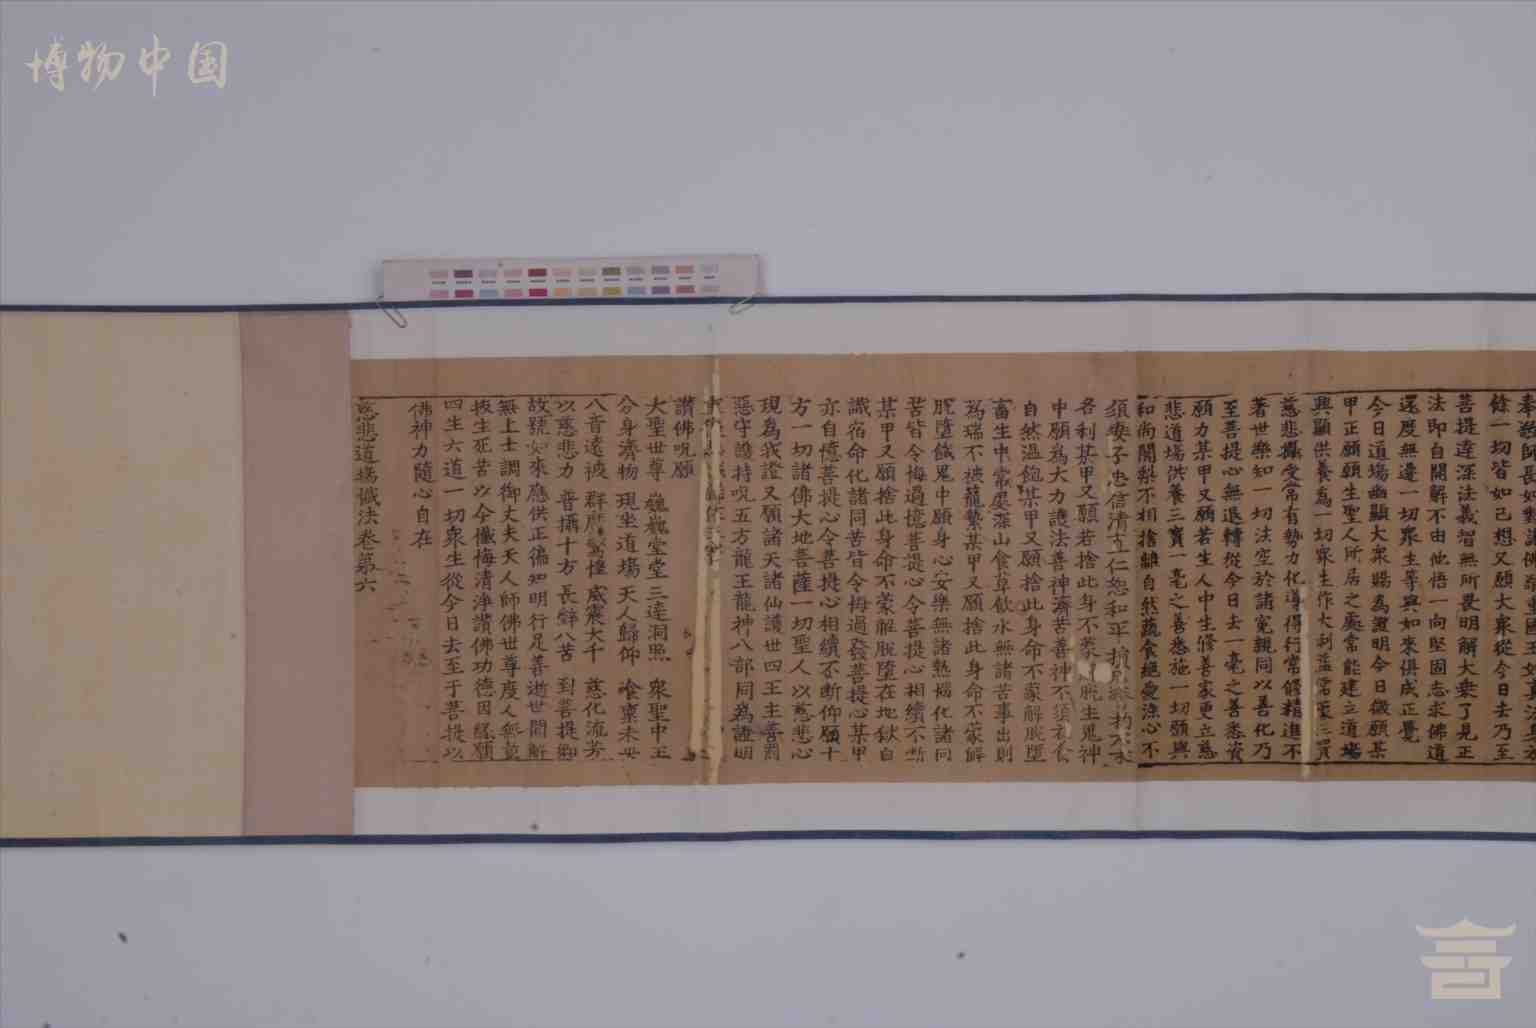 博物中国
餘一切皆如己想又願大衆從今日去乃至
菩提達深法義智無所畏明解大乗了見正
法即自開解不由他悟一向堅固志求佛道
還度無邊一切衆生等與如來俱成正覺
今日道場幽顯大衆賜為證明今日微願某
甲正願願生聖人所居之處常能建立道場
興顯供養為一切衆生作大利益常蒙三寶
慈悲攝受常有勢力化導得行常修精進不
著世樂知一切法空於諸寃親同以善化乃
至菩提心無退轉從今日去一毫之善悉資
願力某甲又願若生人中生修善家更立慈
悲道場供養三寶一毫之善悉施一切願與
和尚闍梨不相捨離自然蔬食絕愛染心不
須妻子忠信清直仁恕和平
各利某甲又願若捨此身不蒙解脫生鬼神
中願為大力護法善神濟苦善神不須衣食
自然溫飽某甲又願捨此身命不蒙解脫墮
畜生中常處深山食草飲水無諸苦事出則
為瑞不被籠縶某甲又願捨此身命不蒙解
脫墮餓鬼中願身心安樂無諸熱惱化諸同
苦皆令悔過憶菩提心令菩提心相續不斷
某甲又願捨此身命不蒙解脫墮在地獄自
識宿命化諸同苦皆令悔過發菩提心某甲
亦自憶菩提心令菩提心相續不斷仰願十
方一切諸佛大地菩薩一切聖人以慈悲心
現為我證又願諸天諸仙護世四王主善罰
惡守護持呪五方龍王龍神八部同為證明
讚佛呪願
大聖世尊 巍巍堂堂 三達洞照 衆聖中王
分身濟物 現坐道場 天人歸仰 飡稟未央
八音遠被 群魔驚惶 威震大千 慈化流芳
以慈悲力 普攝十方 長辭八苦 到菩提鄉
故號如來應供正徧知明行足善逝世間解
無上士調御丈夫天人師佛世尊度人無量
拔生死苦以今懺悔清淨讚佛功德因緣願
四生六道一切衆生從今日去至于菩提以
佛神力隨心自在
慈悲道場懺法卷第六